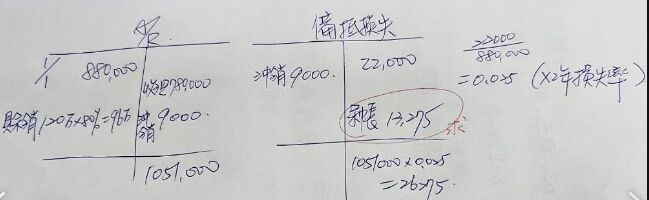 A/R
1/1 880,000
收現 789,000
賒銷 120万×80%=96万
沖銷 9000.
1051,000
備抵損失
沖銷 9000.
22,000
13,275
1051000×0.025
=26275.
22000
880,000
=0.025 (X2年損失率)